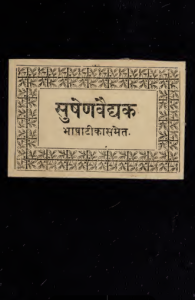 सुषेणवैद्यक
भाषाटीकासमेत.